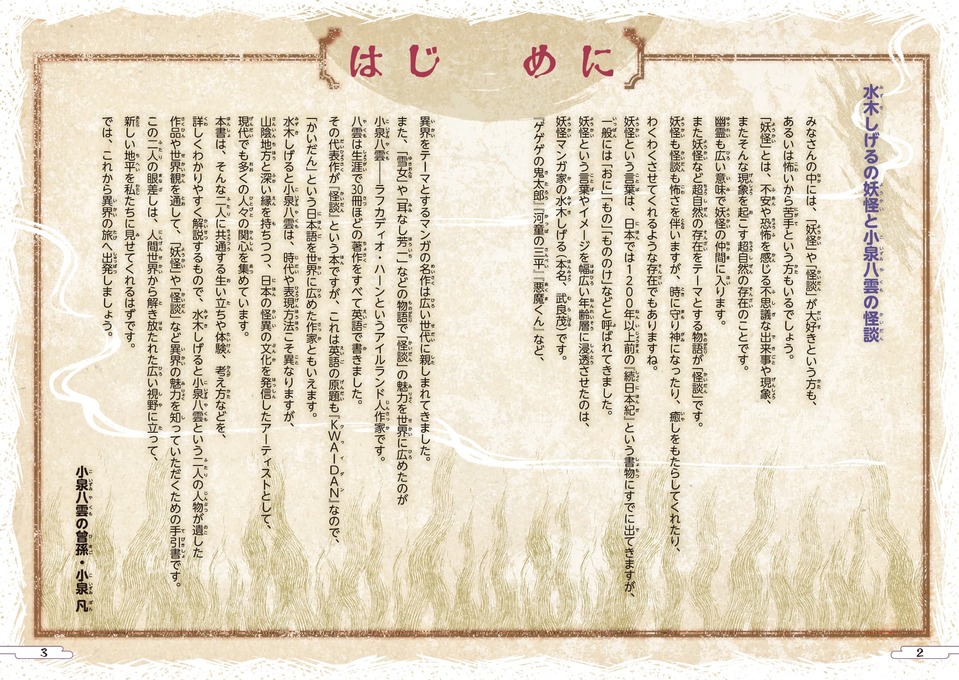 はじめに
水木しげるの妖怪と小泉八雲の怪談
みなさんの中には、「妖怪」や「怪談」が大好きという方も、
あるいは怖いから苦手という方もいるでしょう。
「妖怪」とは、不安や恐怖を感じる不思議な出来事や現象、
またそんな現象を起こす超自然の存在のことです。
幽霊も広い意味で妖怪の仲間に入ります。
また妖怪など超自然の存在をテーマとする物語が「怪談」です。
妖怪も怪談も怖さを伴いますが、時に守り神になったり、癒しをもたらしてくれたり、
わくわくさせてくれるような存在でもありますね。
妖怪という言葉は、日本では1200年以上前の『続日本紀』という書物にすでに出てきますが、
一般には「おに」「もの」「もののけ」などと呼ばれてきました。
妖怪という言葉やイメージを幅広い年齢層に浸透させたのは、
妖怪マンガ家の水木しげる（本名、武良茂）です。
『ゲゲゲの鬼太郎』『河童の三平』『悪魔くん』など、
異界をテーマとするマンガの名作は広い世代に親しまれてきました。
また、「雪女」や「耳なし芳一」などの物語で「怪談」の魅力を世界に広めたのが
小泉八雲――ラフカディオ・ハーンというアイルランド人作家です。
八雲は生涯で30冊ほどの著作をすべて英語で書きました。
その代表作が『怪談』という本ですが、これは英語の原題も『KWAIDAN』なので、
「かいだん」という日本語を世界に広めた作家ともいえます。
水木しげると小泉八雲は、時代や表現方法こそ異なりますが、
山陰地方と深い縁を持ちつつ、日本の怪異の文化を発信したアーティストとして、
現代でも多くの人々の関心を集めています。
本書は、そんな二人に共通する生い立ちや体験、考え方などを、
詳しくわかりやすく解説するもので、水木しげると小泉八雲という二人の人物が遺した
作品や世界観を通して、「妖怪」や「怪談」など異界の魅力を知っていただくための手引書です。
この二人の眼差しは、人間世界から解き放たれた広い視野に立って、
新しい地平を私たちに見せてくれるはずです。
では、これから異界の旅へ出発しましょう。
小泉八雲の曾孫・小泉 凡
2
3